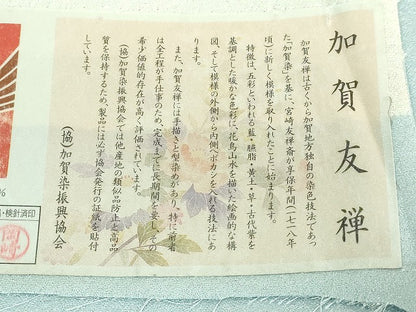 加賀友禅
加賀友禅は古くから加賀地方独自の染色技法であっ
た「加賀染」を基に、宮崎友禅斎が享保年間(一七一八年
頃)に新しく模様を取り入れたことに始まります。
特徴は、五彩といわれる藍・臙脂・黄土・草・古代紫を
基調とした暖かな色彩に、花鳥山水を描いた絵画的な構
図、そして模様の外側から内側へボカシを入れる技法にあ
ります。
また、加賀友禅には手描きと型染めがあり、特に前者
は全工程が手仕事のため、完成までに長期間を要し、その
希少価値的存在が高く評価されています。
(協)加賀染振興協会では他産地の類似品防止と高品
質を保持するため、製品には必ず協会発行の証紙を貼付
しています。
(協)加賀染振興協会
%
・検針済印